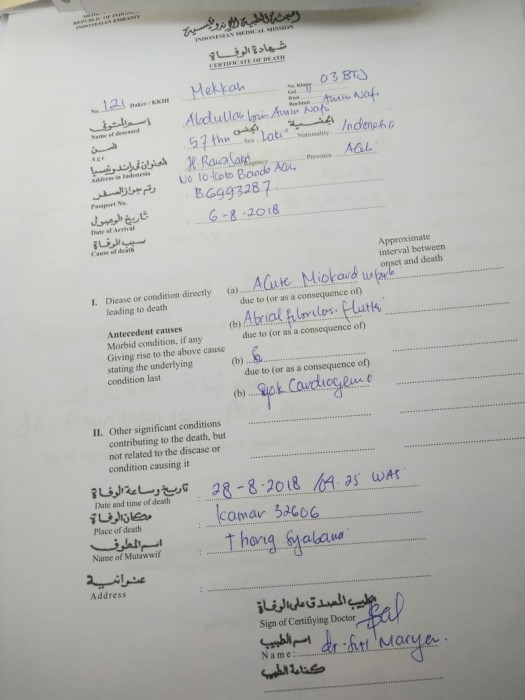 REPUBLIC OF INDONESIA
INDONESIAN EMBASSY
INDONESIAN MEDICAL MISSION
شهادة الوفاة
CERTIFICATE OF DEATH
Mekkah
03 BTJ
No. 121
Name of deceased Abdullah bin Amin Nafi
اسم المتوفى
السن
Age 57 thn Sex Laki² Nationality Indonesia
الجنس
الجنسية
Address in Indonesia
No 10 Kota Banda Aceh
Province Aceh
رقم جواز السفر
Passport No. B6993287
تاريخ الوصول
Date of Arrival 6-8-2018
سبب الوفاة
Cause of death
Approximate
interval between
onset and death
I. Diease or condition directly
leading to death
(a) Acute Miokard Infark
due to (or as a consequence of)
Antecedent causes
Morbid condition, if any
Giving rise to the above cause
stating the underlying
condition last
(b) Atrial
due to (or as a consequence of)
(b)
due to (or as a consequence of)
(b) Syok Cardiogenic
II. Other significant conditions
contributing to the death, but
not related to the disease or
condition causing it
تاريخ وساعة الوفاة
Date and time of death : 28-8-2018 / 04.25 WAS
مكان الوفاة
Place of death : Kamar 32606
اسم المطوف
Name of Mutawwif : Thong Syabana
عنوانه
Address :
الطبيب المصدق على الوفاة
Sign of Certifiying Doctor
اسم الطبيب
Name: dr. Siti Marya